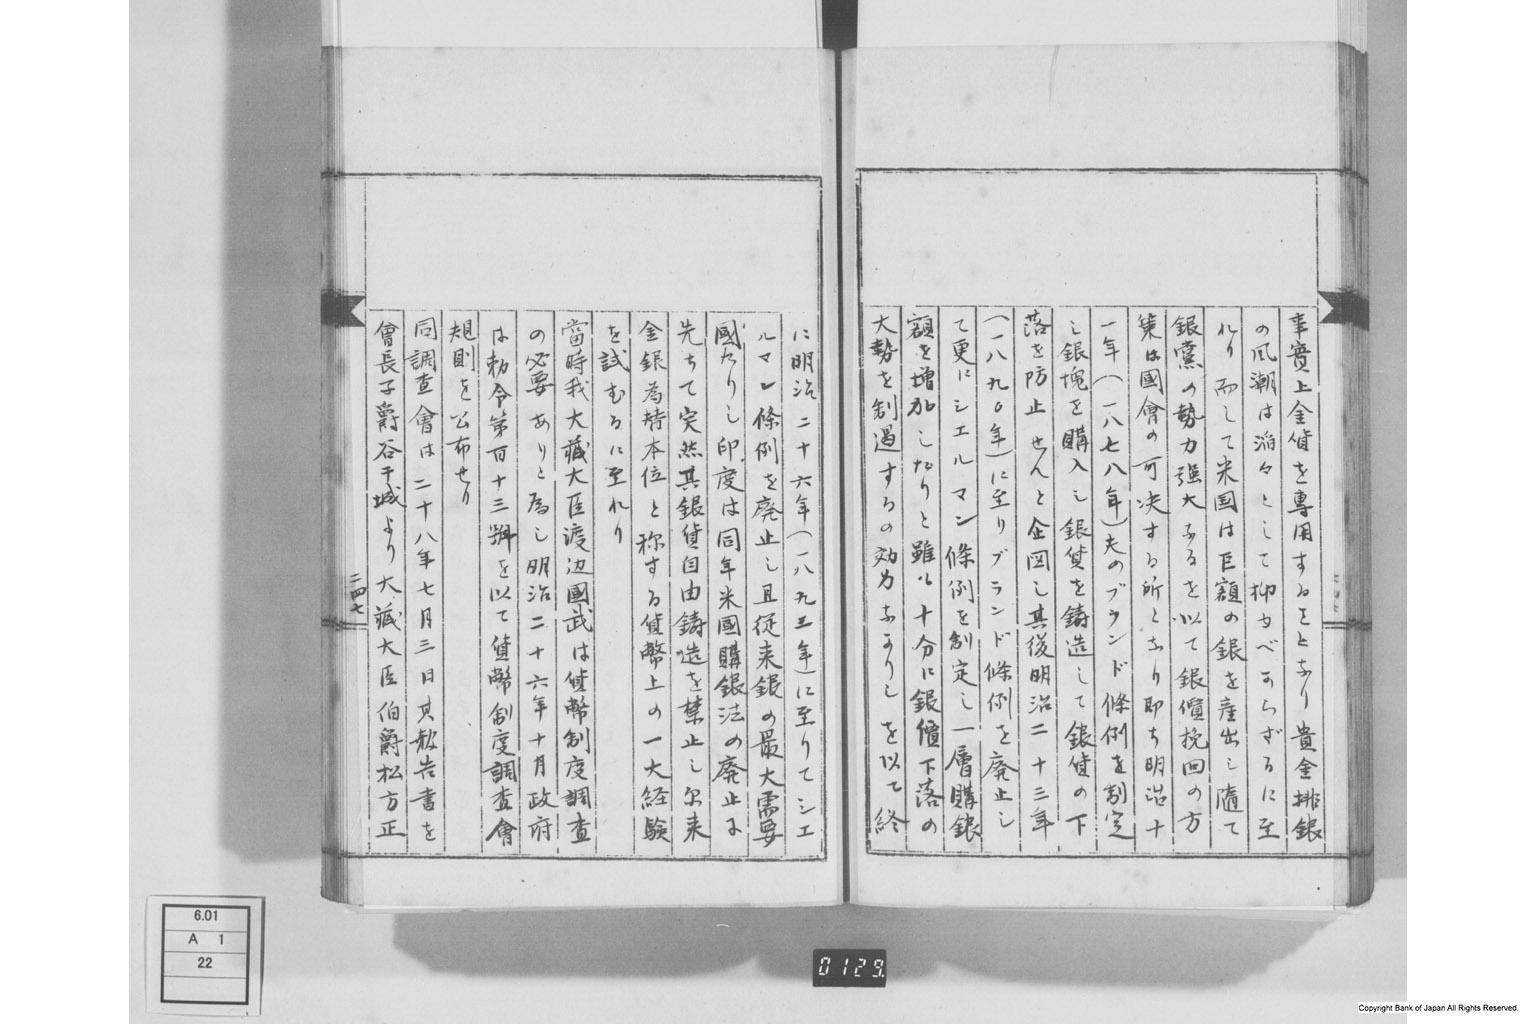 事實上金貨を專用することとなり貴金排銀
の風潮は滔々として抑ゆべからざるに至
れり而して米国は巨額の銀を産出し随て
銀黨の勢力強大なるを以て銀價挽回の方
策は國會の可决する所となり即ち明治十
一年(一八七八年)夫のブランド條例を制定
し銀塊を購入し銀貨を鋳造して銀貨の下
落を防止せんと企図し其後明治二十三年
(一八九〇年)に至りブランド條例を廃止し
て更にシエルマン條例を制定し一層購銀
額を増加したりと雖も十分に銀價下落の
大勢を制遏するの効力なかりしを以て終
に明治二十六年(一八九三年)に至りてシエ
ルマン條例を廃止し且従来銀の最大需要
國たりし印度は同年米國購銀法の廃止に
先ちて突然其銀貨自由鋳造を禁止し尓来
金銀為替本位と称する貨幣上の一大経験
を試むるに至れり
當時我大藏大臣渡边國武は貨幣制度調査
の必要ありと為し明治二十六年十月政府
は勅令第百十三号を以て貨幣制度調査會
規則を公布せり
同調査會は二十八年七月三日其報告書を
會長子爵谷干城より大藏大臣伯爵松方正
二四七
6.01
A 1
22
0129
Copyright Bank of Japan All Rights Reserved.